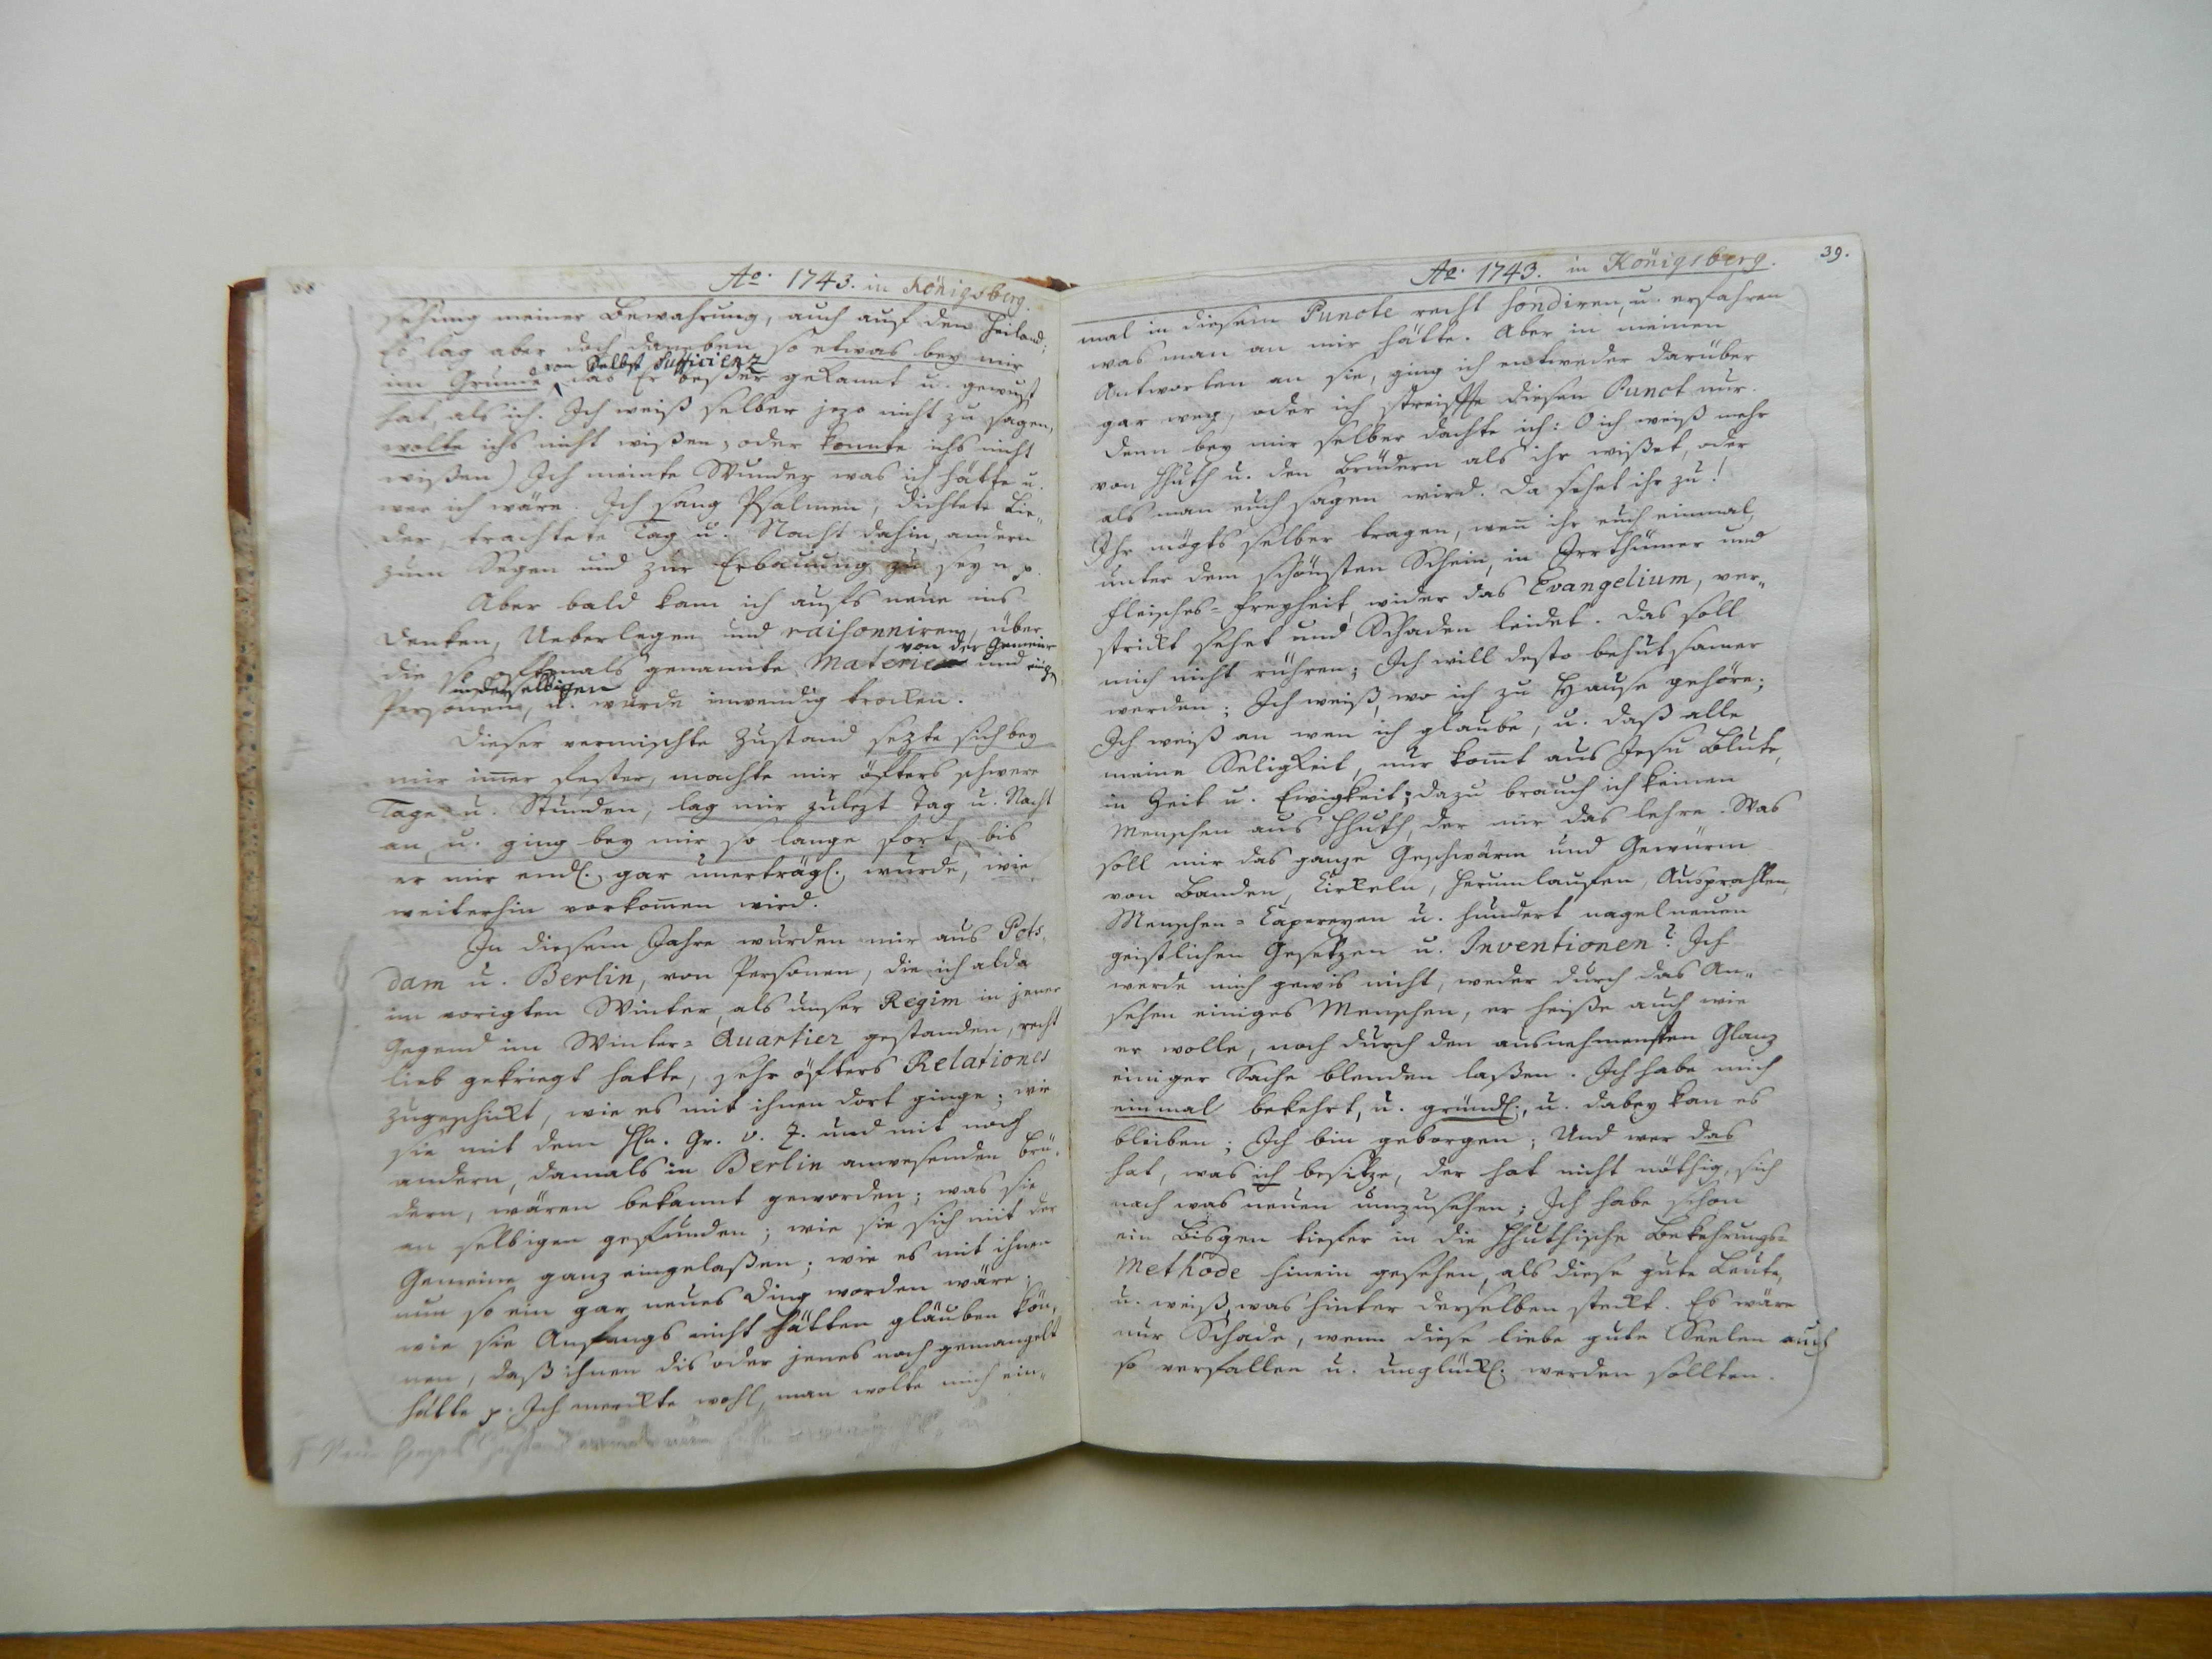 Ao. 1743. in Königsberg.
sehung meiner Bewahrung, auch auf den Heiland;
Es lag aber doch daneben so etwas bey mir
von Selbst Sufficienz
im Grunde, das Er beßer gekannt u. gewust
hat, als ich. Ich weiß selber jezo nicht zu sagen,
wolte ichs nicht wißen, oder konnte ichs nicht
wißen) Ich meinte Wunder was ich hätte u.
wer ich wäre. Ich sang Psalmen, dichtete Lie„
der, trachtete Tag u. Nacht dahin, andern
zum Segen und zur Erbauung zu seyn p.
Aber bald kam ich aufs neue ins
Denken, Ueberlegen und raisonniren, über
von der Gemeine
die so oftmals genannte Materie und einige
in derselbigen
Personen, u. wurde inwendig trocken.
Dieser vermischte Zustand sezte sich bey
mir im̅er fester, machte mir öfters schwere
Tage u. Stunden, lag mir zulezt Tag u. Nacht
an, u. ging bey mir so lange fort, bis
er mir endl. gar unerträgl. wurde, wie
weiterhin vorkom̅en wird.
In diesem Jahre wurden mir aus Pots„
dam u. Berlin, von Personen, die ich alda
im vorigten Winter, als unser Regim in jener
Gegend im Winter=Quartier gestanden, recht
lieb gekriegt hatte, sehr öfters Relationes
zugeschickt, wie es mit ihnen dort ginge; wie
sie mit dem Hn. Gr. v. Z. und mit noch
andern, damals in Berlin anwesenden Brü„
dern, wären bekannt geworden; was sie
an selbigen gefunden; wie sie sich mit der
Gemeine ganz eingelaßen; wie es mit ihnen
nun so ein gar neues Ding worden wäre;
wie sie Anfangs nicht hätten gläuben kön„
nen, daß ihnen dis oder jenes noch gemangelt
hätte p. Ich merckte wohl, man wolte mich ein„
39.
Ao. 1743. in Königsberg.
mal in diesem Puncte recht sondiren, u. erfahren
was man an mir hätte. Aber in meinen
Antworten an sie, ging ich entweder darüber
gar weg, oder ich streifte diesen Punct nur.
Denn bey mir selber dachte ich: O ich weiß mehr
von Hhuth u. den Brüdern als ihr wißet, oder
als man euch sagen wird. Da sehet ihr zu!
Ihr mögts selber tragen, wen̅ ihr euch einmal,
unter dem schönsten Schein, in Irrthümer und
Fleisches=Freyheit wider das Evangelium, ver„
strickt sehet und Schaden leidet. Das soll
mich nicht rühren; Ich will desto behutsamer
werden; Ich weiß, wo ich zu Hause gehöre;
Ich weiß an wen ich glaube, u. daß alle
meine Seligkeit, nur kom̅t aus Jesu Blute,
in Zeit u. Ewigkeit; dazu brauch ich keinen
Menschen aus Hhuth, der mir das lehre. Was
soll mir das ganze Geschwärm und Gewürm
von Banden, Cirkeln, Herumlaufen, Ausprahlen,
Menschen=Capereyen u. hundert nagelneuen
geistlichen Gesetzen u. Inventionen? Ich
werde mich gewis nicht, weder durch das An„
sehen einiges Menschen, er heiße auch wie
er wolle, noch durch den ausnehmensten Glanz
einiger Sache blenden laßen. Ich habe mich
einmal bekehrt, u. gründl., u. dabey kan es
bleiben; Ich bin geborgen; Und wer das
hat, was ich besitze, der hat nicht nöthig, sich
nach was neuen umzusehen; Ich habe schon
ein bisgen tiefer in die Hhuthische Bekehrungs=
Methode hinein gesehen, als diese gute Leute,
u. weiß, was hinter derselben steckt. Es wäre
nur Schade, wenn diese liebe gute Seelen auch
so verfallen u. unglückl. werden sollten.